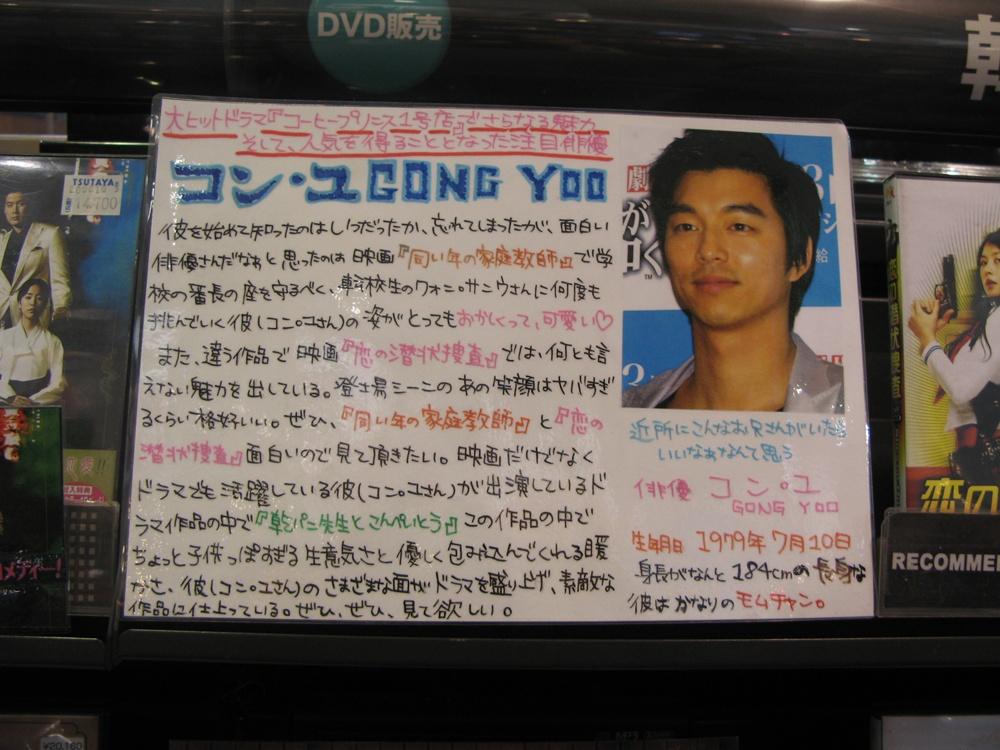 DVD販売
韓
TSUTAYA
14,700
大ヒットドラマ『コーヒープリンス1号店』でさらなる魅力
そして、人気を得ることとなった注目俳優
コン・ユ GONG YOO
彼を始めて知ったのはいつだったか、忘れてしまったが、面白い
俳優さんだなぁと思ったのは 映画『同い年の家庭教師』で学
校の番長の座を守るべく、転校生のクォン・サンウさんに何度も
挑んでいく彼(コン・ユさん)の姿がとってもおかしくって、可愛い♡
また、違う作品で 映画『恋の潜伏捜査』では、何とも言
えない魅力を出している。登場シーンのあの笑顔はヤバすぎ
るくらい格好いい。ぜひ、『同い年の家庭教師』と『恋の
潜伏捜査』面白いので見て頂きたい。映画だけでなく
ドラマでも活躍している彼(コン・ユさん)が出演しているド
ラマ作品の中で『乾パン先生とこんぺいとう』この作品の中で
ちょっと子供っぽすぎる生意気さと優しく包み込んでくれる暖
かさ、彼(コン・ユさん)のさまざまな面がドラマを盛り上げ、素敵な
作品に仕上っている。ぜひ、ぜひ、見て欲しい。
劇
が
口く
給
近所にこんなお兄さんがいたら
いいなぁなんて思う
俳優 コン・ユ
GONG YOO
生年月日 1979年7月10日
身長がなんと184cmの長身な
彼はかなりのモムチャン。
の潜伏捜査
恋の
RECOMME
メディー!
¥20,160